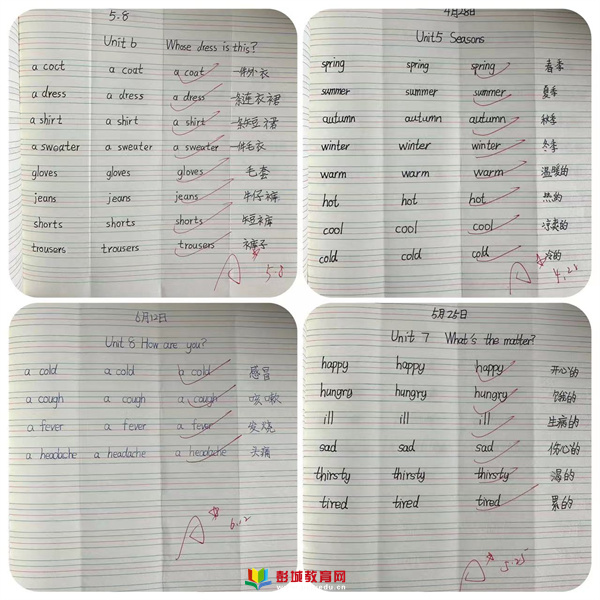 5.8
Unit 6 Whose dress is this?
a coat a coat a coat 一件外衣
a dress a dress a dress 一条连衣裙
a shirt a shirt a shirt
a sweater a sweater a sweater 一件毛衣
gloves gloves gloves 毛套
jeans jeans jeans 牛仔裤
shorts shorts shorts 短裤
trousers trousers trousers 裤子
A 5.8
4月28日
Unit5 Seasons
spring spring spring 春季
summer summer summer 夏季
autumn autumn autumn 秋季
winter winter winter 冬季
warm warm warm 温暖的
hot hot hot 热的
cool cool cool 凉爽的
cold cold cold 冷的
A 4.28
6月12日
Unit 8 How are you?
a cold a cold a cold 感冒
a cough a cough a cough 咳嗽
a fever a fever a fever 发烧
a headache a headache a headache 头痛
A 6.12
5月25日
Unit 7 What's the matter?
happy happy happy 开心的
hungry hungry hungry 饿的
ill ill ill 生病的
sad sad sad 伤心的
thirsty thirsty thirsty 渴的
tired tired tired 累的
A 5.25
彭城教育网